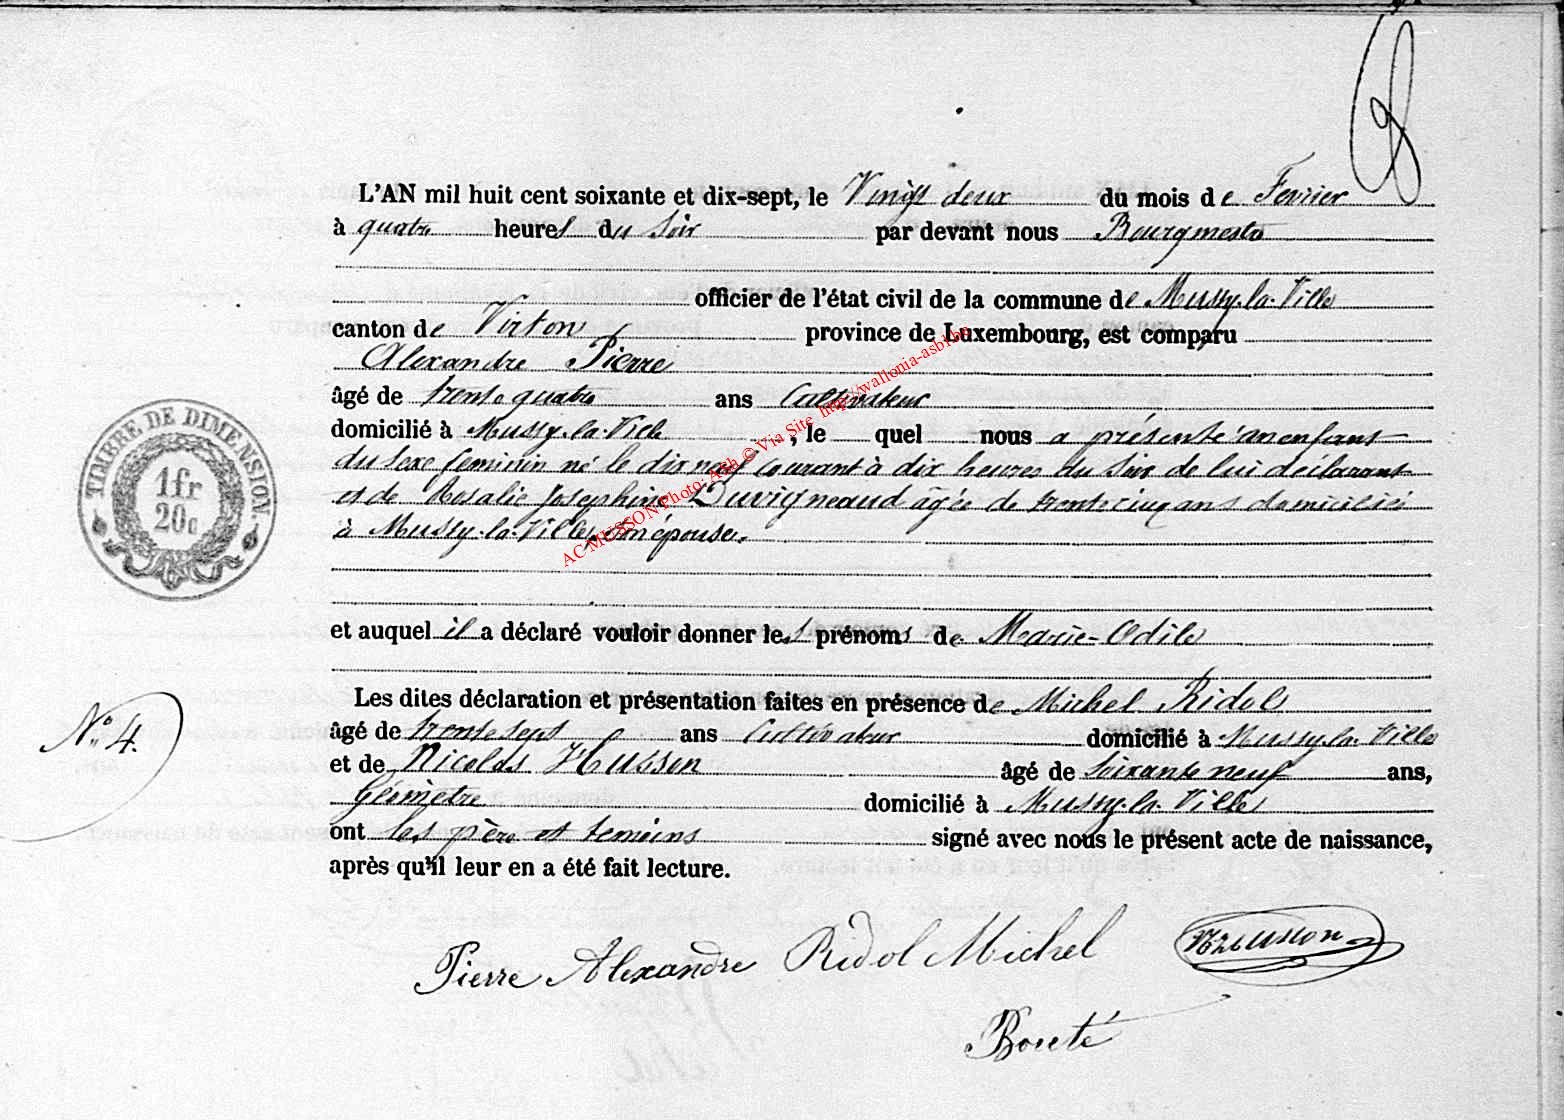 L'AN mil huit cent soixante et dix-sept, le Vingt deux du mois de Fevrier
à quatre heures du soir par devant nous Bourgmestre
officier de l'état civil de la commune de Mussy-la-Ville
canton de Virton province de Luxembourg, est comparu
Alexandre Pierre
âgé de trente quatre ans Cultivateur
domicilié à Mussy-la-Ville, le quel nous a présenté un enfant
du sexe feminin né le dix neuf courant à dix heures du soir de lui déclarant
et de Rosalie Josephine Duvigneaud âgée de trente cinq ans domiciliée
à Mussy-la-Ville, son épouse.
et auquel il a déclaré vouloir donner les prénoms de Marie-Odile
Les dites déclaration et présentation faites en présence de Michel Ridol
N° 4.
âgé de trente sept ans Cultivateur domicilié à Mussy-la-Ville
et de Nicolas Husson âgé de soixante neuf ans,
Géomètre domicilié à Mussy-la-Ville
ont les père et temoins signé avec nous le présent acte de naissance,
après qu'il leur en a été fait lecture.
Pierre Alexandre Ridol Michel NHusson
TIMBRE DE DIMENSION
1 fr
20 c
AC MUSSON Photo: Ash © Via Site http://wallonia-asbl.be